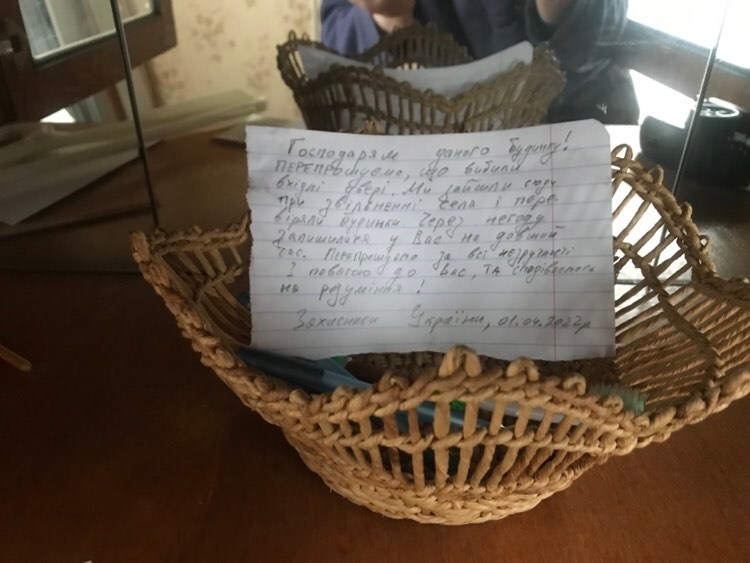 Господарям даного будинку!
Перепрошуємо, що вибили
вхідні двері. Ми зайшли сюди
при звільненні села і пере-
віряли будинки. Через негоду
залишилися у Вас на довгий
час. Перепрошуємо за всі незручності
З повагою до Вас, та сподіваємось
на розуміння!
Захисники України, 01.04.2022р